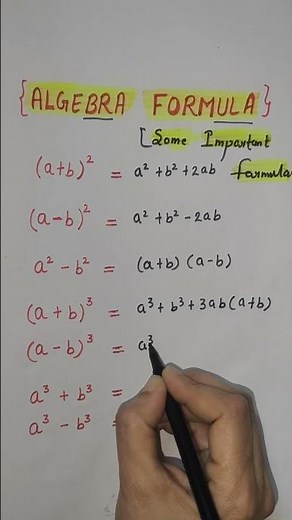 {ALGEBRA FORMULA}
[Some Important
formula
(a+b)² = a² + b² + 2ab
(a-b)² = a² + b² - 2ab
a² - b² = (a+b) (a-b)
(a + b)³ = a³ + b³ + 3ab(a+b)
(a - b)³ = a³
a³ + b³ =
a³ - b³ =